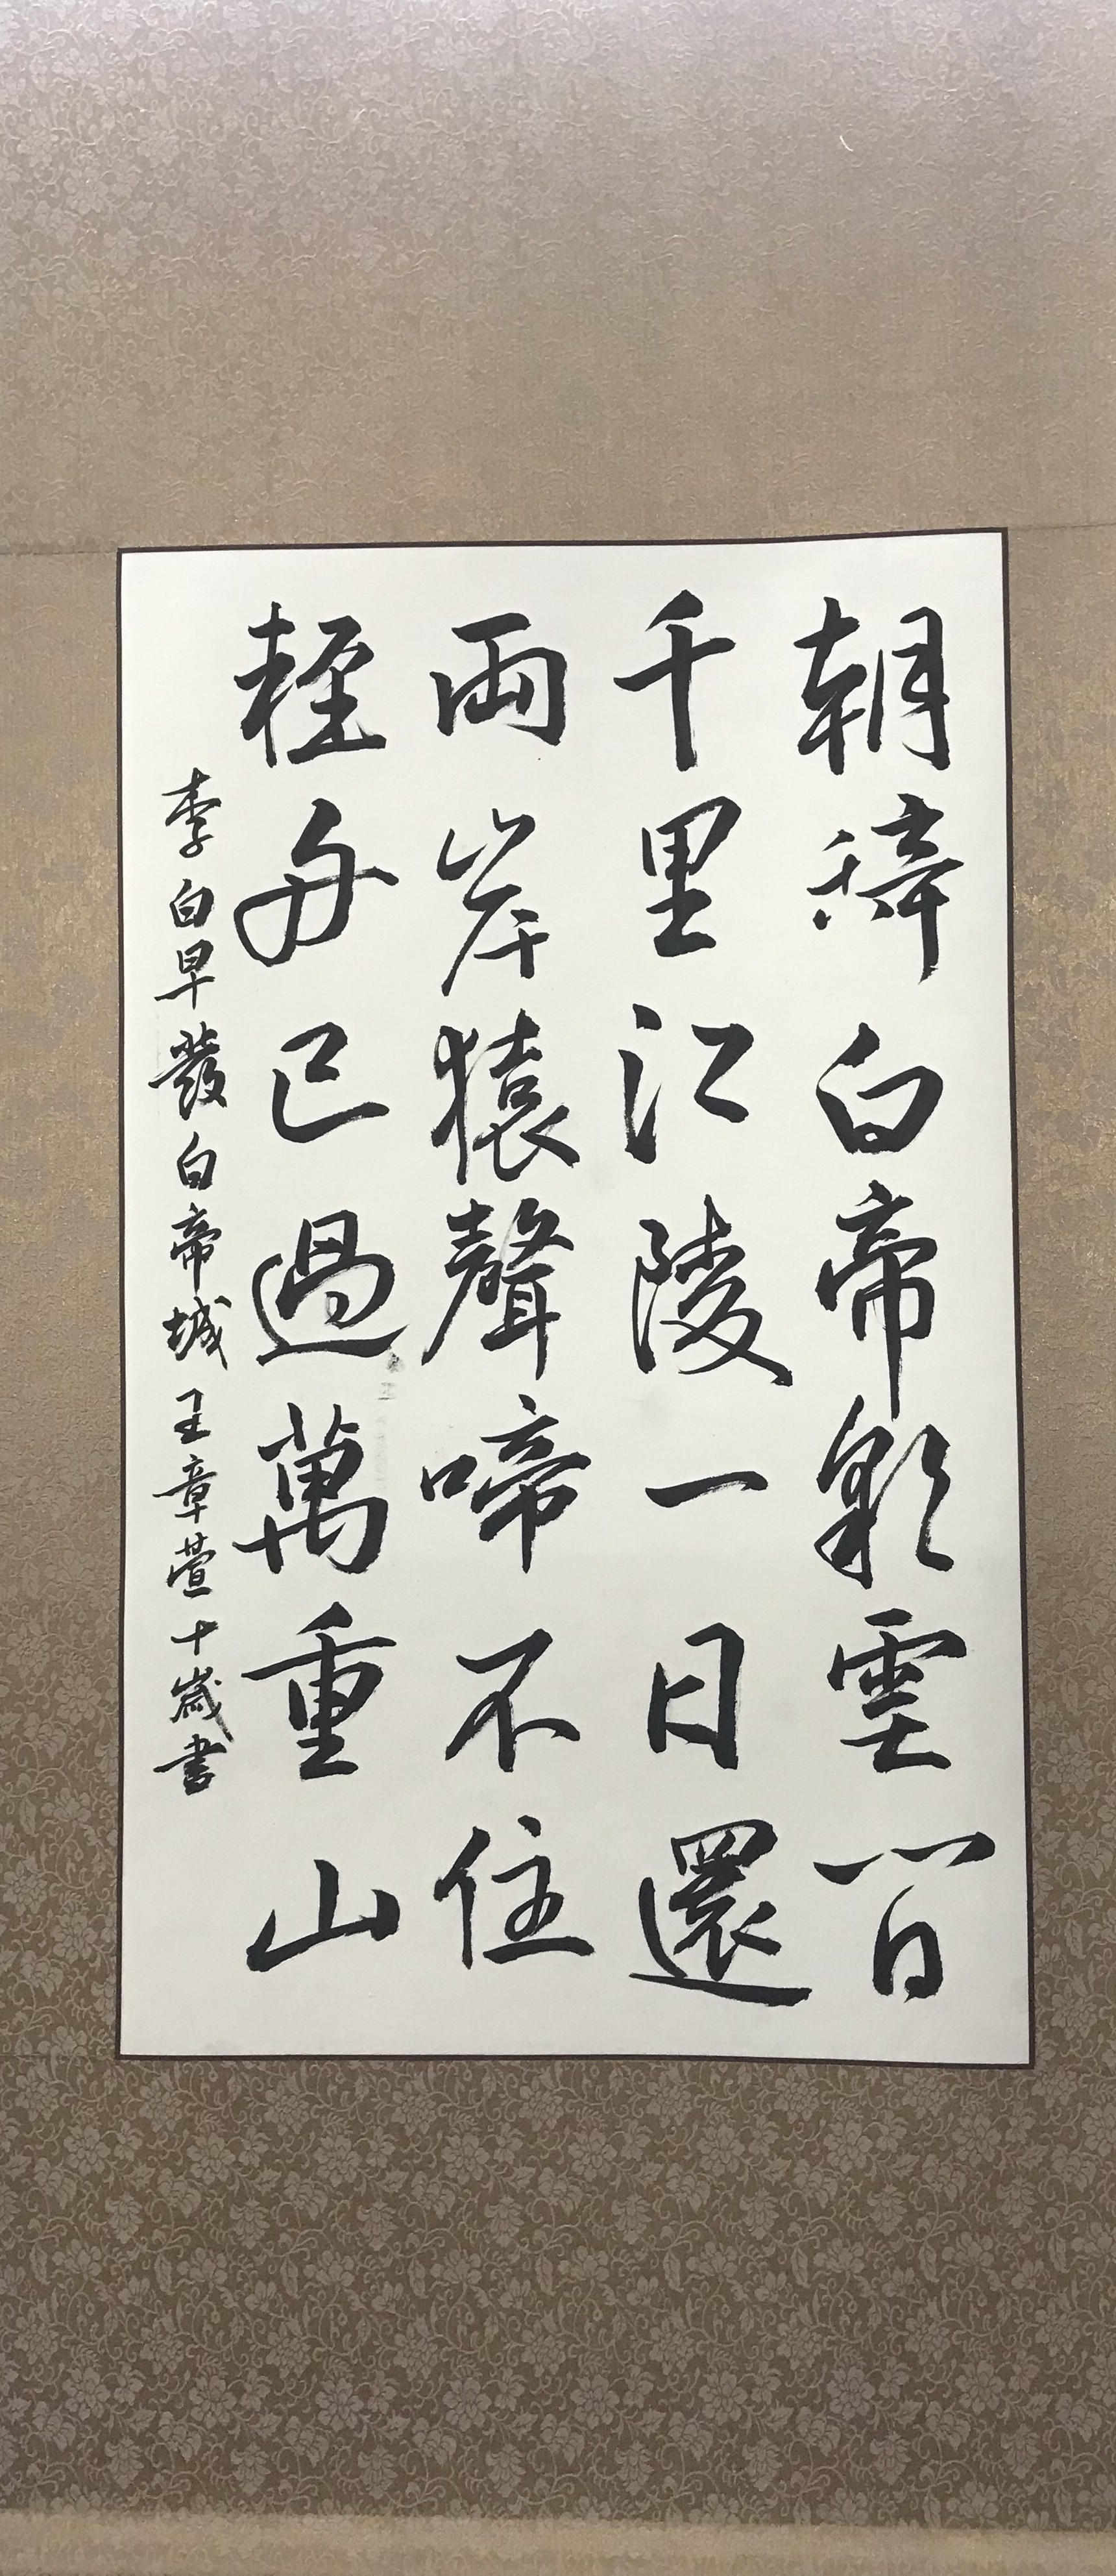 朝辞白帝彩雲間
千里江陵一日還
兩岸猿聲啼不住
輕舟已過萬重山
李白早發白帝城王章萱十歲書